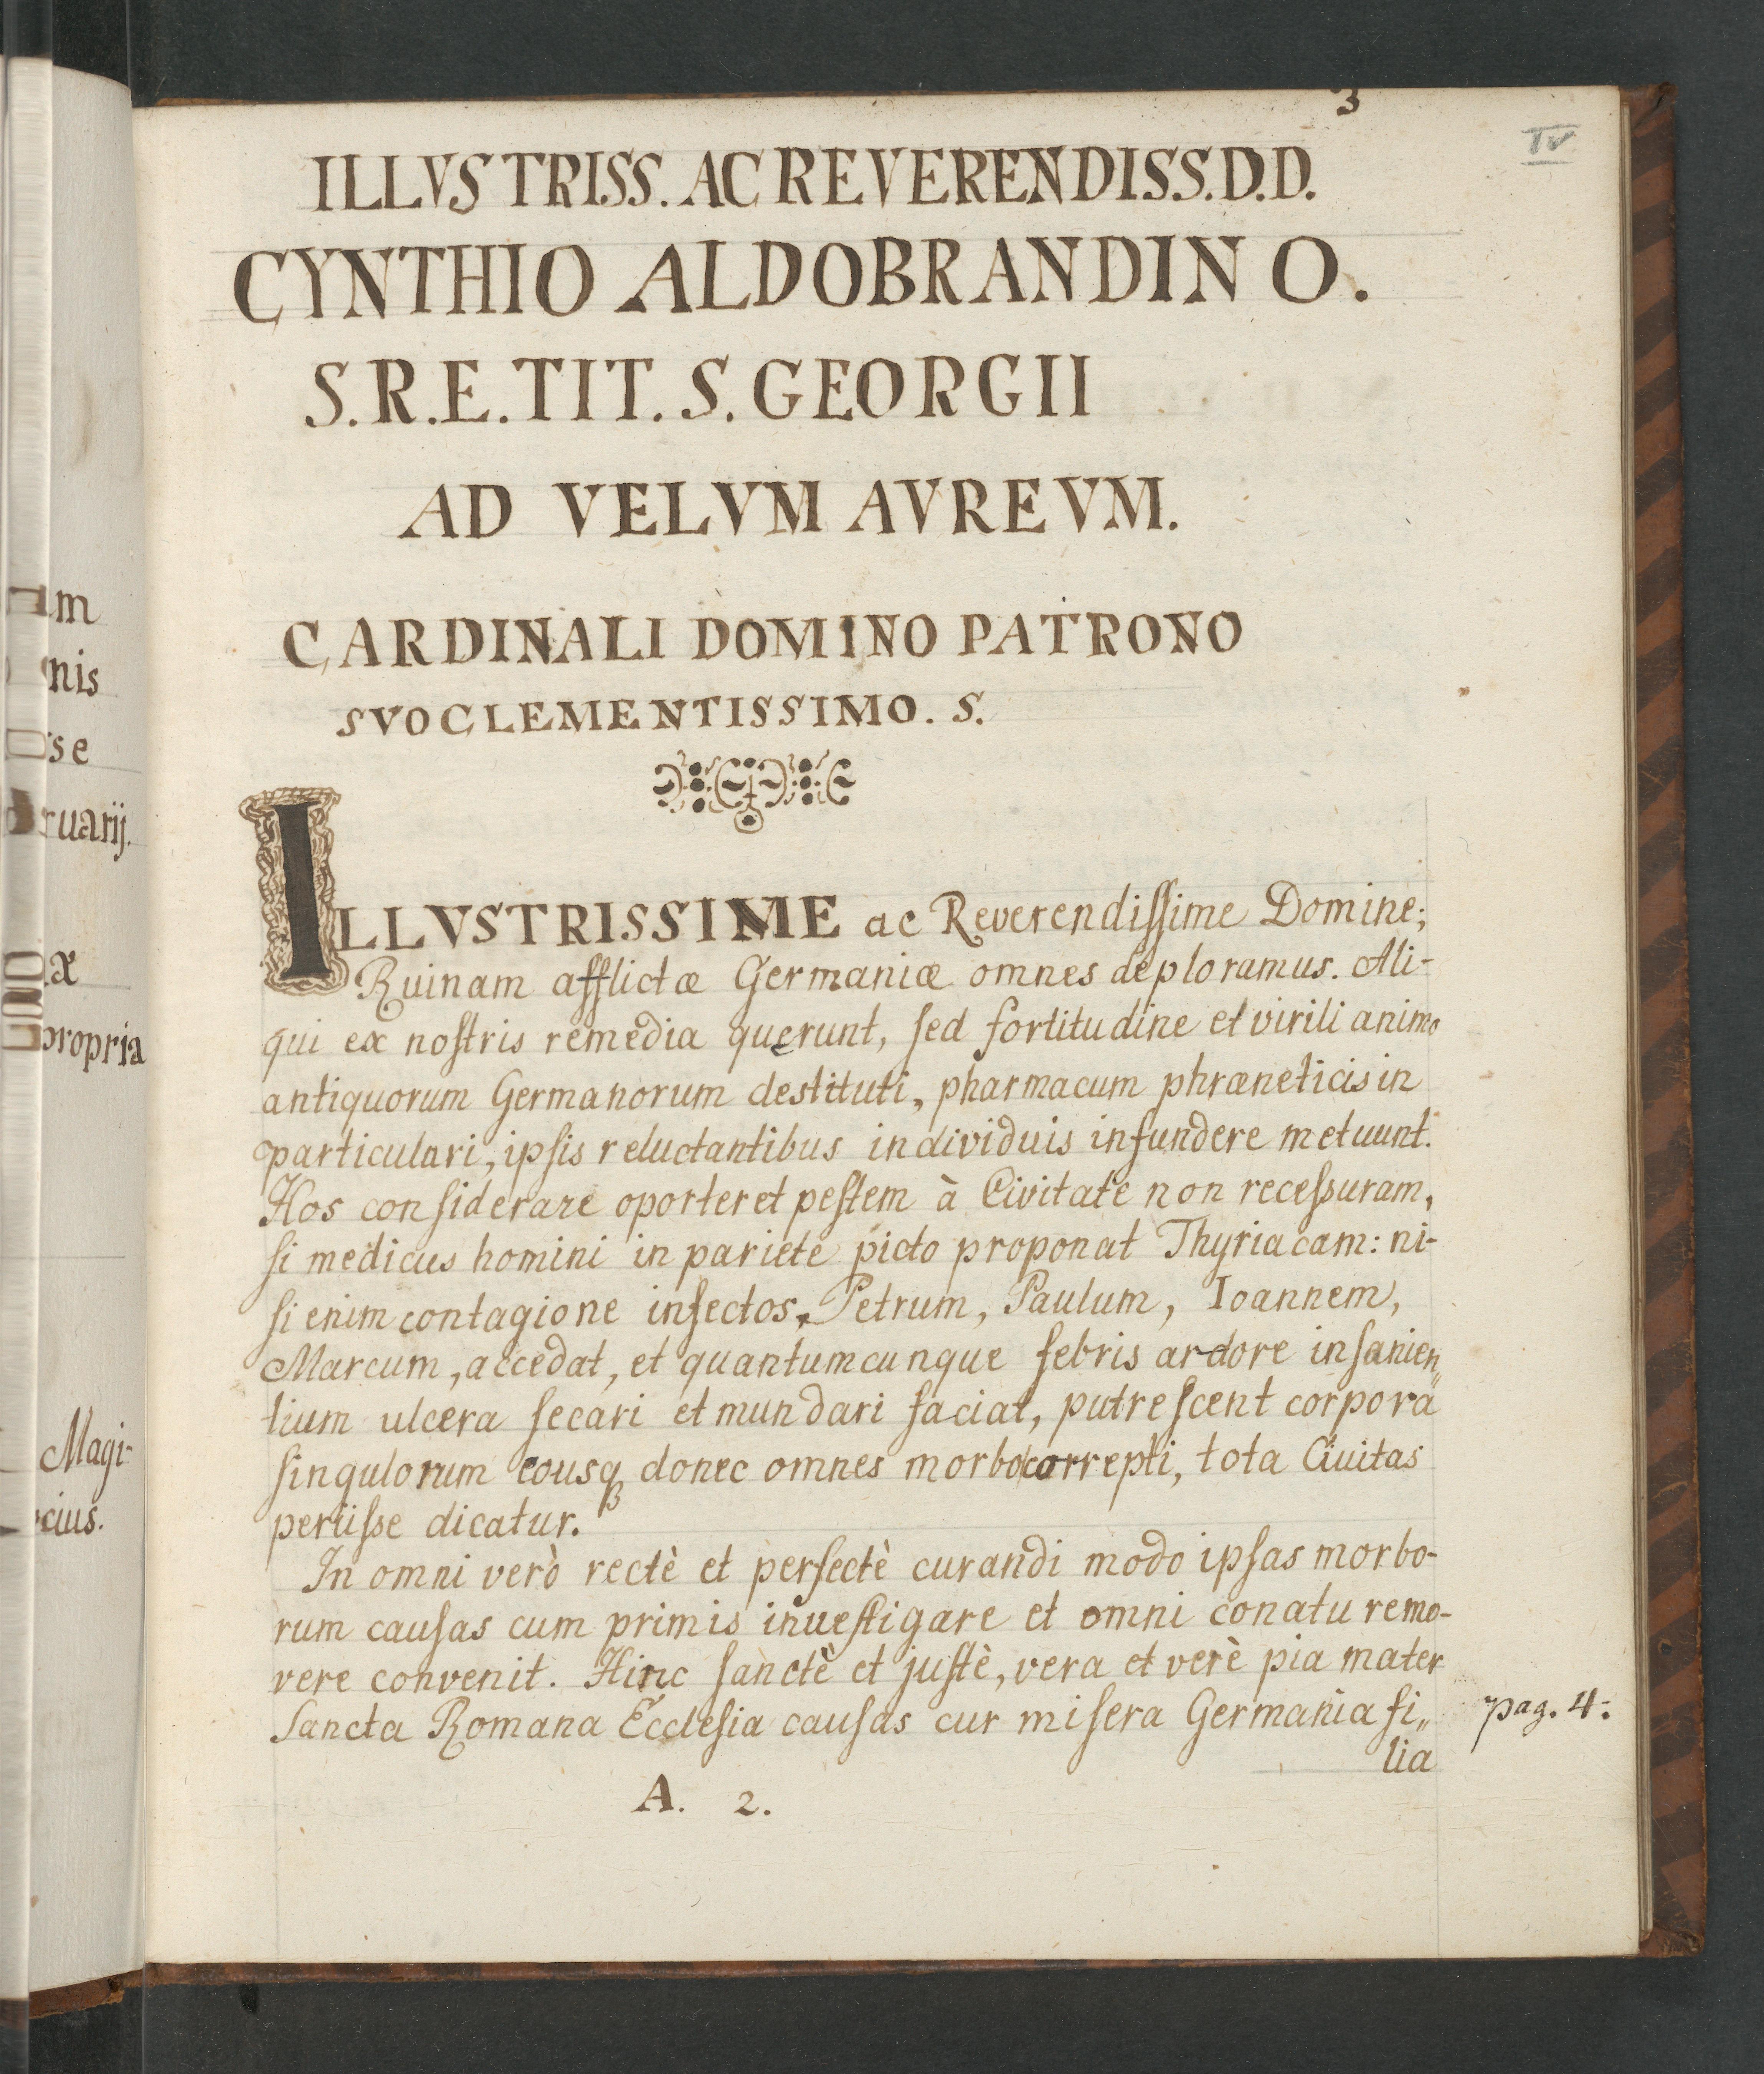 3
IV
ILLVSTRISS. AC REVERENDISS. D.D.
CYNTHIO ALDOBRANDINO.
S.R.E. TIT. S. GEORGII
AD VELVM AVREVM.
CARDINALI DOMINO PATRONO
SVO CLEMENTISSIMO. S.
ILLVSTRISSIME ac Reverendiſſime Domine;
Ruinam afflictæ Germaniæ omnes deploramus. Ali-
qui ex noſtris remedia quęrunt, ſed fortitudine et virili animo
antiquorum Germanorum destituti, pharmacum phræneticis in
particulari, ipſis reluctantibus individuis infundere metuunt.
Hos conſiderare oporteret peſtem à Civitate non receſsuram,
ſi medicus homini in pariete picto proponat Thyriacam: ni-
ſi enim contagione infectos, Petrum, Paulum, Ioannem,
Marcum, accedat, et quantumcunque febris ardore inſanien„
tium ulcera ſecari et mundari faciat, putreſcent corpora
ſingulorum eousq₃ donec omnes morbo correpti, tota Ciuitas
periiſse dicatur.
In omni verò rectè et perfectè curandi modo ipſas morbo-
rum cauſas cum primis inueſtigare et omni conatu remo-
vere convenit. Hinc ſanctè et juſtè, vera et verè pia mater
Sancta Romana Eccleſia cauſas cur miſera Germania fi„
lia
pag. 4.
A. 2.
m
nis
se
ruarij.
x
propria
Magi-
cius.